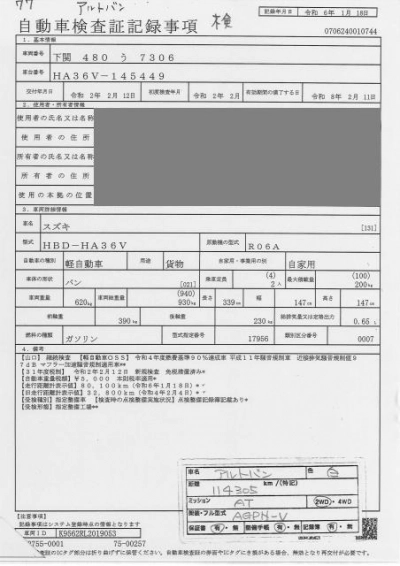 アルトバン 検
自動車検査証記録事項
記録年月日 令和 6年 1月18日
0706240010744
1. 基本情報
車両番号 下関 480 う 7306
車台番号 HA36V-145449
交付年月日 令和 2年 2月12日 初度検査年月 令和 2年 2月 有効期間の満了する日 令和 8年 2月11日
2. 使用者・所有者情報
使用者の氏名又は名称
使用者の住所
所有者の氏名又は名称
所有者の住所
使用の本拠の位置
3. 車両詳細情報
車名 スズキ [131]
型式 HBD-HA36V 原動機の型式 R06A
自動車の種別 軽自動車 用途 貨物 自家用・事業用の別 自家用
車体の形状 バン [021] 乗車定員 (4) 2人 最大積載量 (100) 200kg
車両重量 620kg 車両総重量 (940) 930kg 長さ 339cm 幅 147cm 高さ 147cm
前軸重 390kg 後軸重 230kg 総排気量又は定格出力 0.65L
燃料の種類 ガソリン 型式指定番号 17956 類別区分番号 0007
4. 備考
【山口】 継続検査 【軽自動車OSS】 令和4年度燃費基準90%達成車 平成11年騒音規制車 近接排気騒音規制値97dB マフラー加速騒音規制適用車**
【31年度税制】 令和2年2月12日 新規検査 免税措置済み*
【自動車重量税額】 ¥5,000 本則税率適用*
【走行距離計表示値】 80,100km (令和6年1月18日)*
【旧走行距離計表示値】 32,800km (令和4年2月4日)*
【受検種別】 指定整備車 【検査時の点検整備実施状況】 点検整備記録簿記載あり*
【受検形態】 指定整備工場**
車名 アルトバン 色 白
距離 114305 km/(特記)
ミッション AT 2WD・4WD
類別・フル型式 AGPH-V
保証書 有・無 整備手帳 有・無 記録簿 有・無
【注意事項】
記録事項はシステム登録時点の情報となります
車両ID K9562RL2019053
0755-0001 75-00257